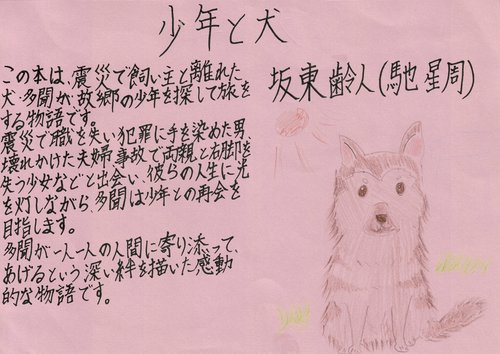 少年と犬
坂東齢人(馳星周)
この本は、震災で飼い主と離れた
犬・多聞が、故郷の少年を探して旅を
する物語です。
震災で職を失い犯罪に手を染めた男、
壊れかけた夫婦、事故で両親と右脚を
失う少女などと出会い、彼らの人生に光
を灯しながら、多聞は少年との再会を
目指します。
多聞が一人一人の人間に寄り添って、
あげるという深い絆を描いた感動
的な物語です。